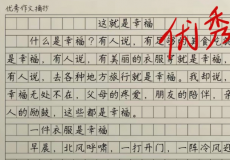 优秀作文摘抄
这就是幸福
优秀
什么是幸福？有人说，有
是幸福，有人说，有美丽的衣服
有人说，去各种地方旅行就是幸福。我却说，
幸福无处不在，父母的疼爱，朋友的陪伴，
人的鼓励，这些都是幸福。
一件衣服是幸福
早晨，北风呼啸，一打开门，一阵冷风